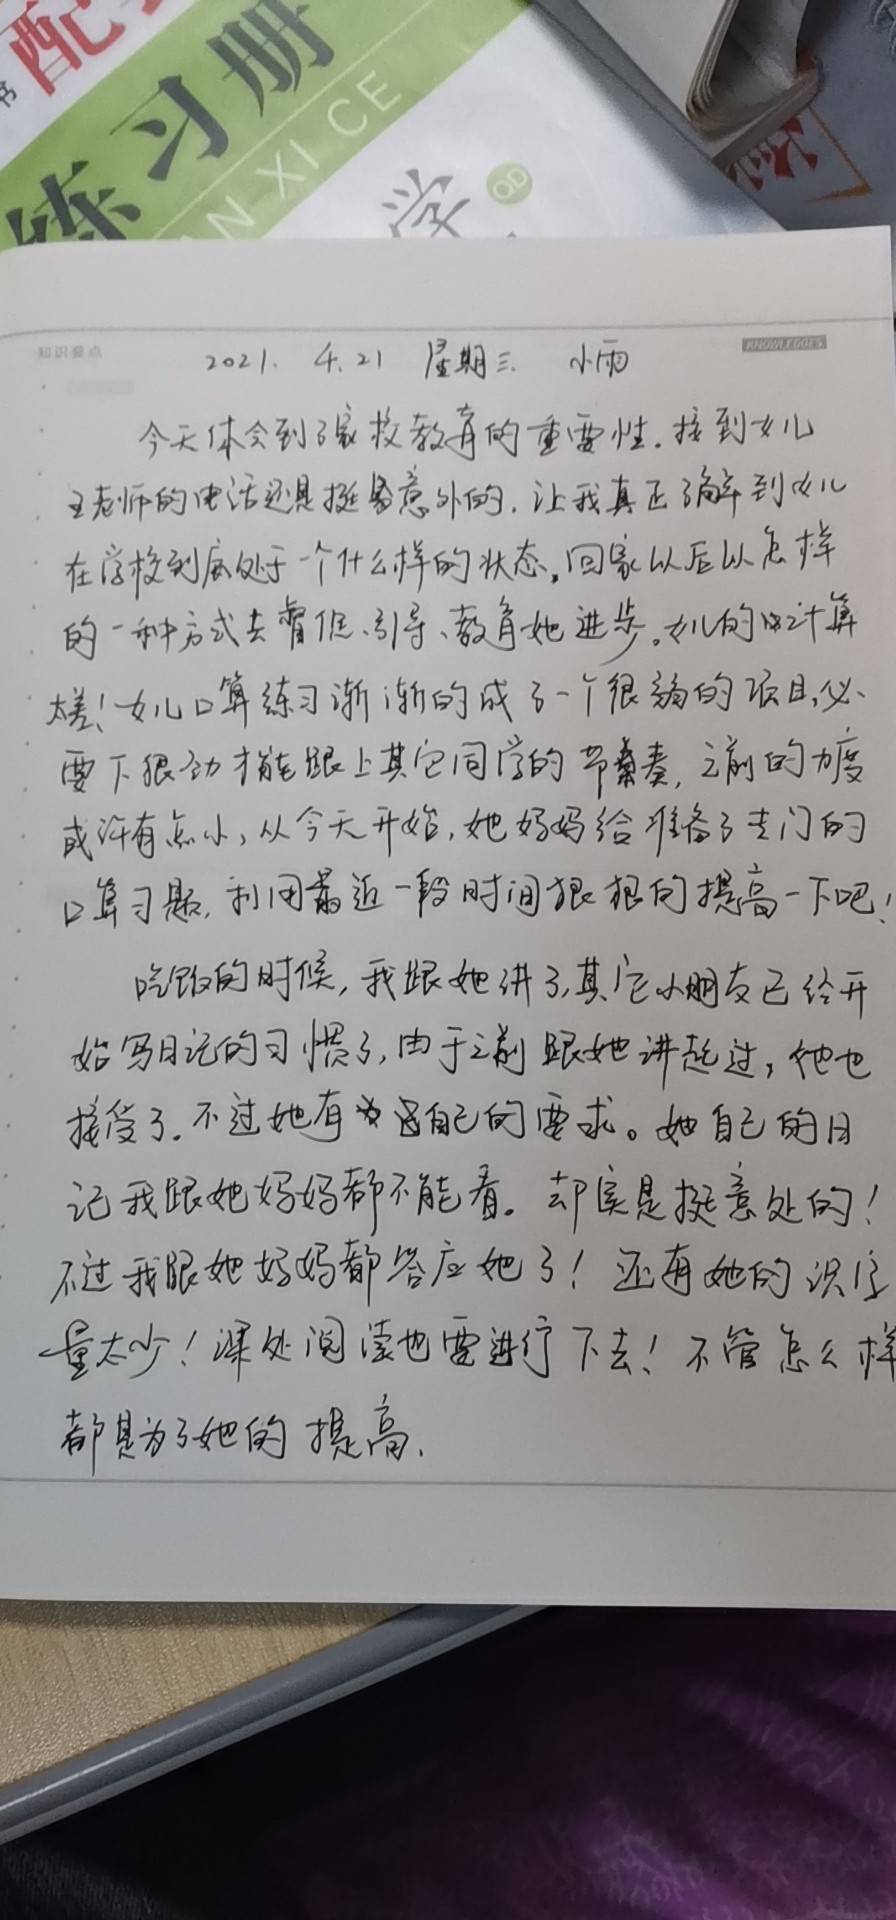 配
练习册
XI CE
学
QD
知识要点
KNOWLEDGES
2021. 4.21 星期三. 小雨
今天体会到了家校教育的重要性。接到女儿
王老师的电话还是挺意外的,让我真正了解到女儿
在学校到底处于一个什么样的状态,回家以后以怎样
的一种方式去督促、引导、教育她进步。女儿的口计算
太差!女儿口算练习渐渐的成了一个很弱的项目,必
要下狠劲才能跟上其它同学的节奏,之前的力度
或许有点小,从今天开始,她妈妈给准备了专门的
口算习题,利用最近一段时间狠狠的提高一下吧!
吃饭的时候,我跟她讲了,其它小朋友已经开
始写日记的习惯了,由于之前跟她讲起过,她也
接受了。不过她有自己的要求。她自己的日
记我跟她妈妈都不能看。却实是挺意处的!
不过我跟她妈妈都答应她了!还有她的识字
量太少!课处阅读也要进行下去!不管怎么样
都是为了她的提高.